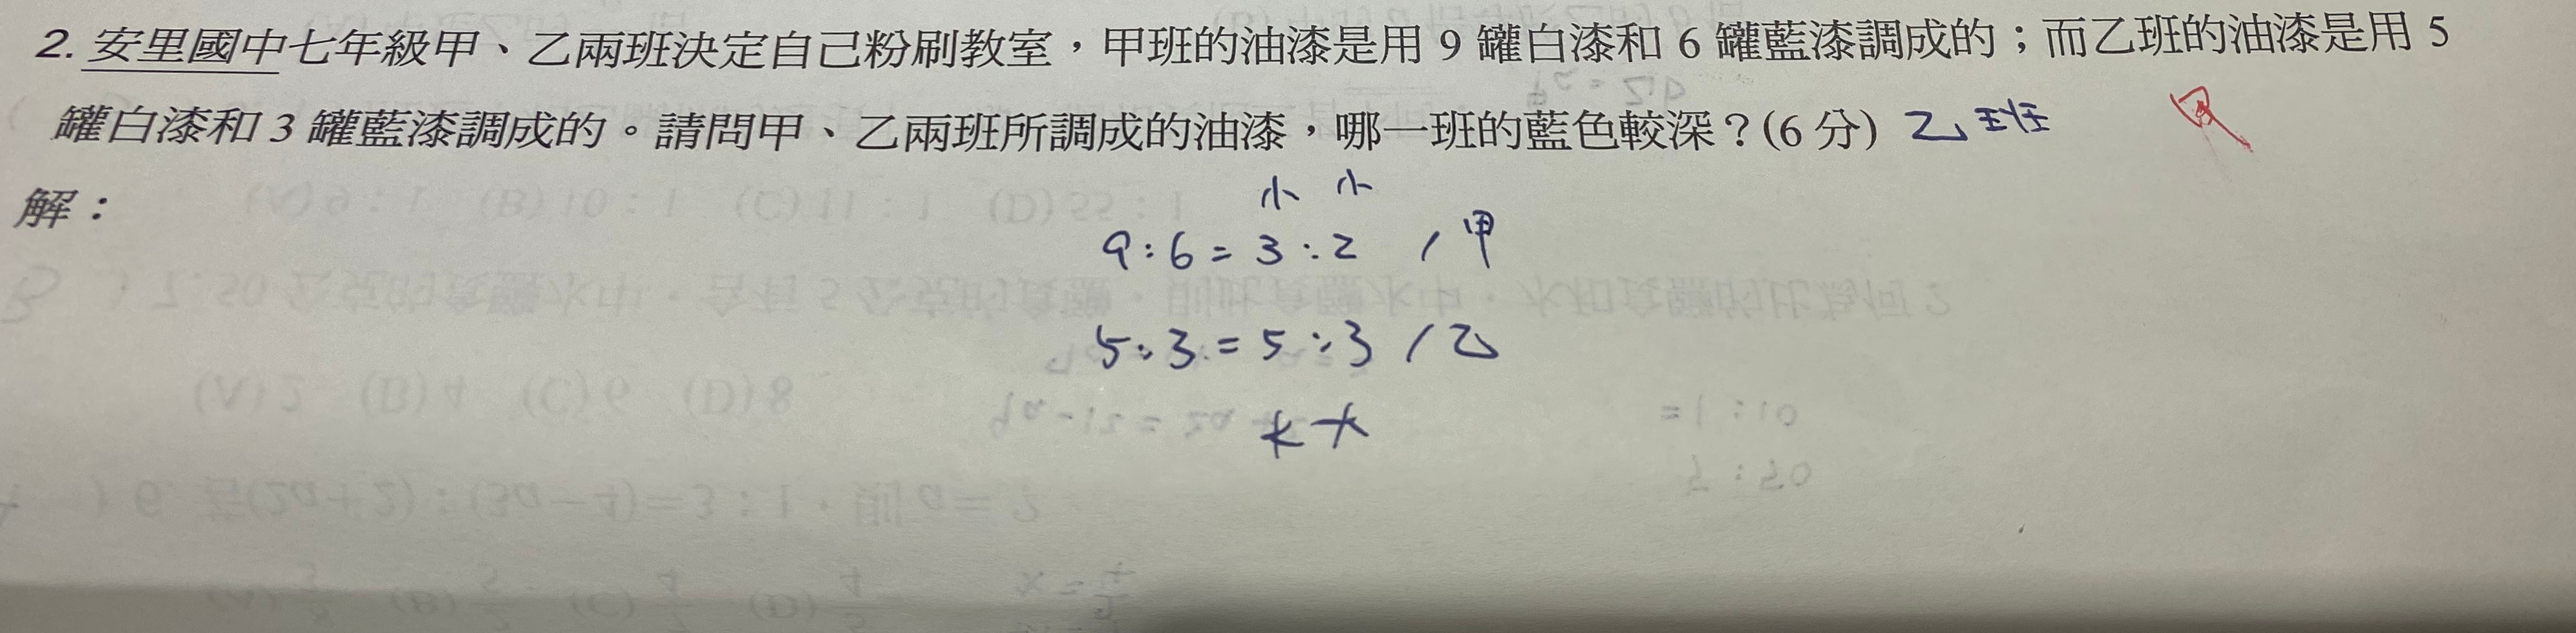 2. 安里國中七年級甲、乙兩班決定自己粉刷教室，甲班的油漆是用 9 罐白漆和 6 罐藍漆調成的；而乙班的油漆是用 5
罐白漆和 3 罐藍漆調成的。請問甲、乙兩班所調成的油漆，哪一班的藍色較深？(6 分) 乙班 甲
解：
小 小
9:6=3:2 / 甲
5:3=5:3 / 乙
大 大